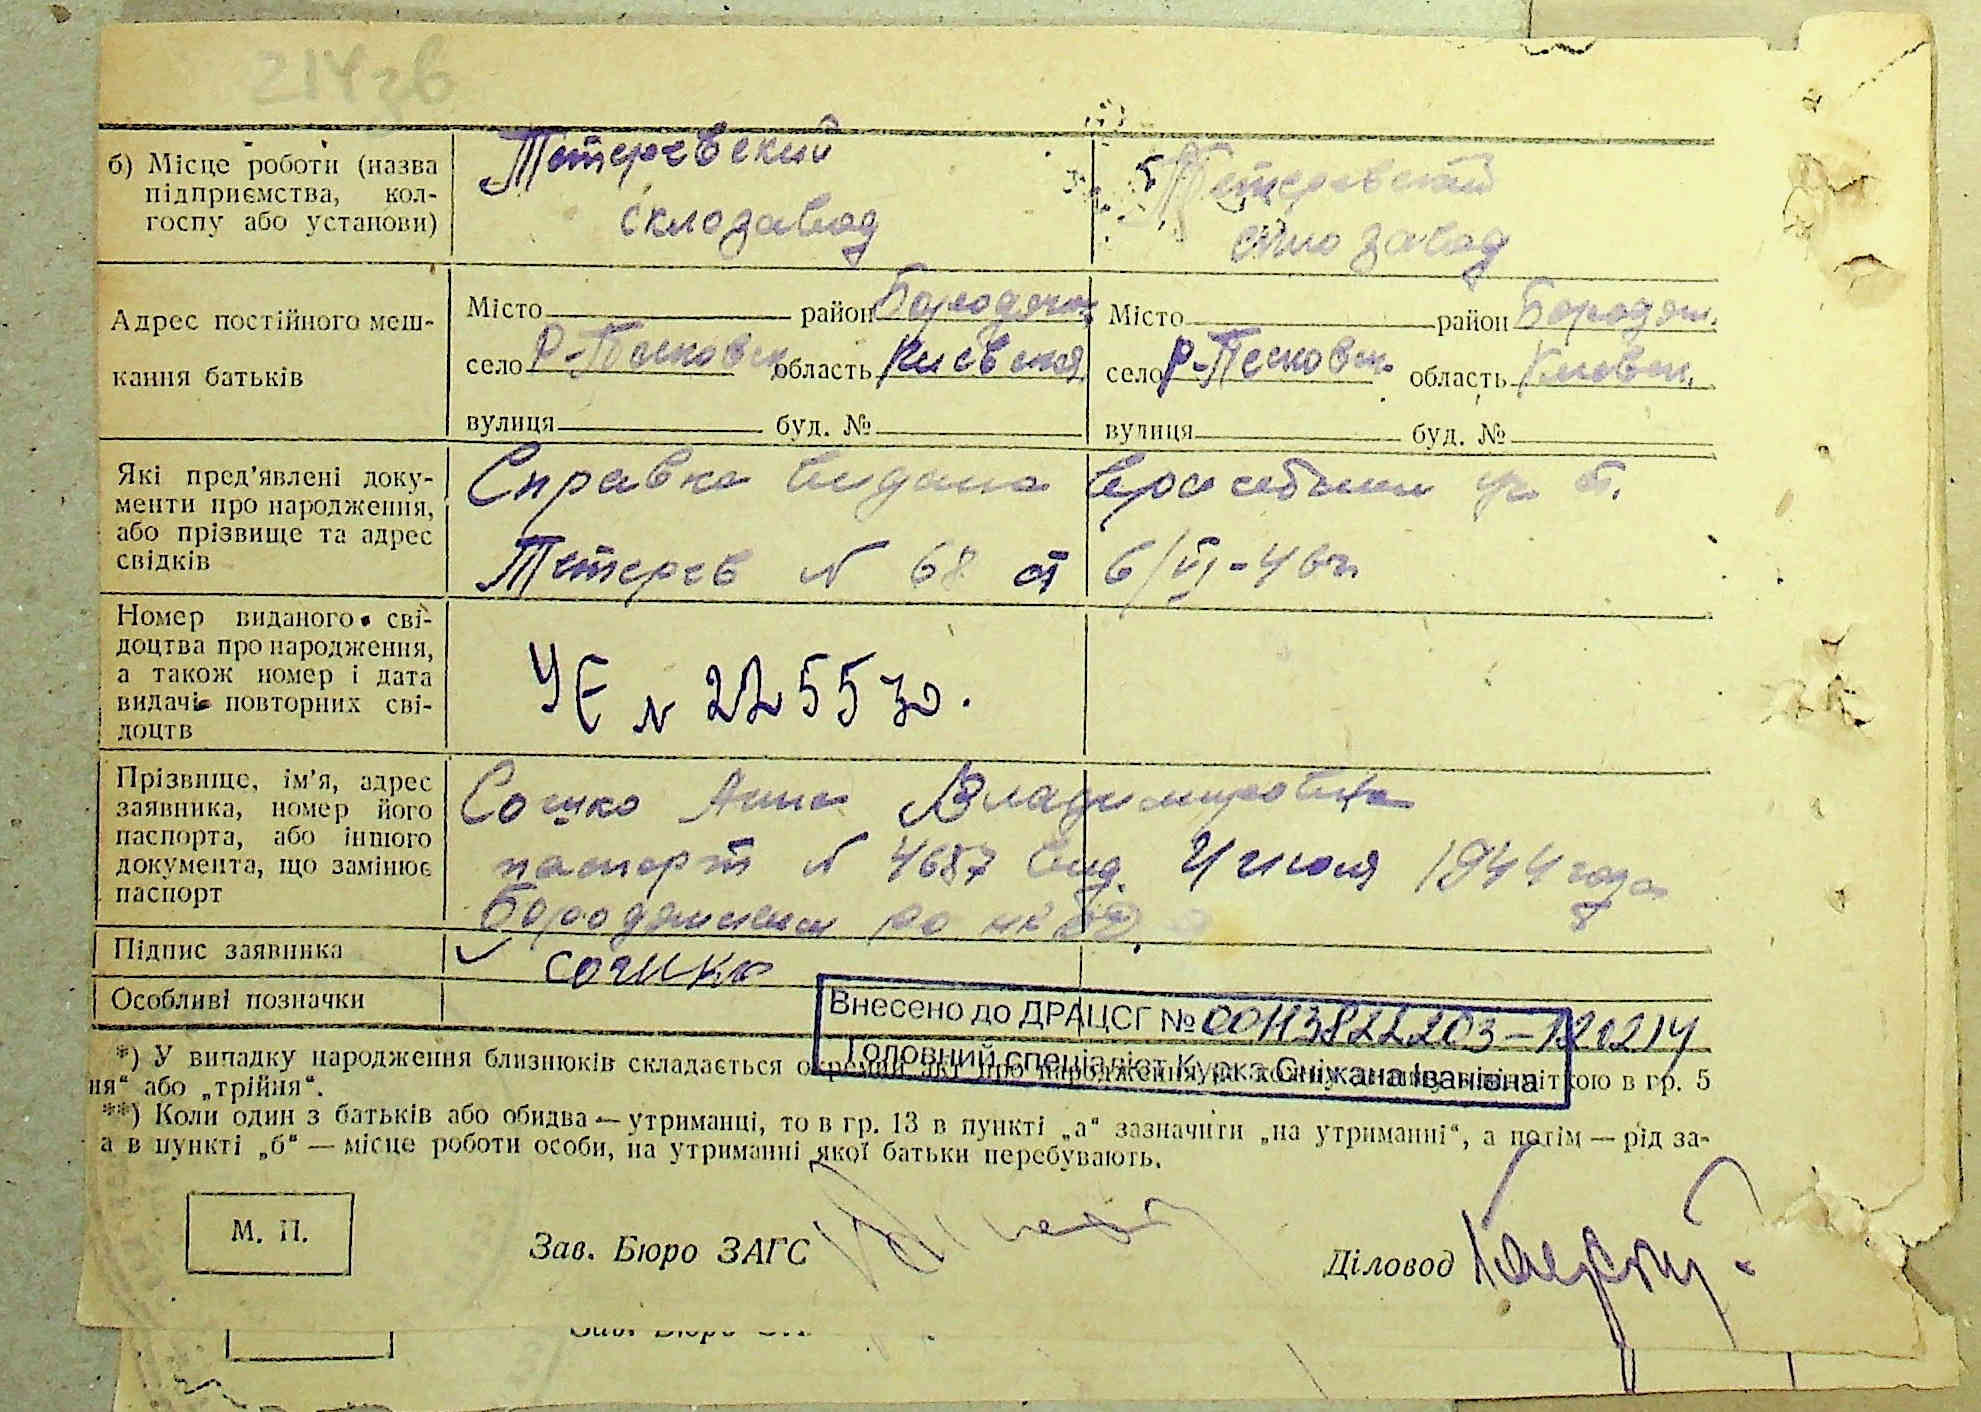 214зв
б) Місце роботи (назва
підприємства, кол-
госпу або установи)
Тетеревский
склозавод
Тетеревский
скло завод
Адрес постійного меш-
кання батьків
Місто район Бородянск.
село Р-Песковск область Киевская
вулиця буд. №
Місто район Бородян.
село Р-Песковск. область Киевск.
вулиця буд. №
Які пред'явлені доку-
менти про народження,
або прізвище та адрес
свідків
Справка видана
Тетерев N 68 от 6/VI-46г.
Номер виданого сві-
доцтва про народження,
а також номер і дата
видачі повторних сві-
доцтв
УЄ N 225530.
Прізвище, ім'я, адрес
заявника, номер його
паспорта, або іншого
документа, що замінює
паспорт
Сошко Анна Владимировна
паспорт N 4687 вид. 4 июля 1944 года
Бородянским ро НКВД
Підпис заявника
Сошко
Особливі позначки
Внесено до ДРАЦСГ № 00113822203-120214
Головний спеціаліст Курка Сніжана Іванівна
*) У випадку народження близнюків складається окремий акт про народження кожну в гр. 5
ня" або „трійня".
**) Коли один з батьків або обидва — утриманці, то в гр. 13 в пункті „а" зазначити „на утриманні", а потім — рід за-
а в пункті „б" — місце роботи особи, на утриманні якої батьки перебувають.
М. П.
Зав. Бюро ЗАГС
Діловод